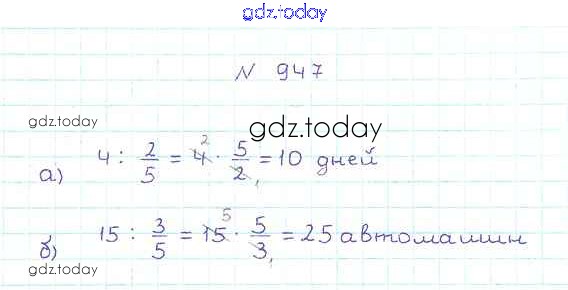 gdz.today
N 947
gdz.today
gdz.today
а) 4 : 2/5 = 4 2 · 5/2 1 = 10 дней
б) 15 : 3/5 = 15 5 · 5/3 1 = 25 автомашин
gdz.today